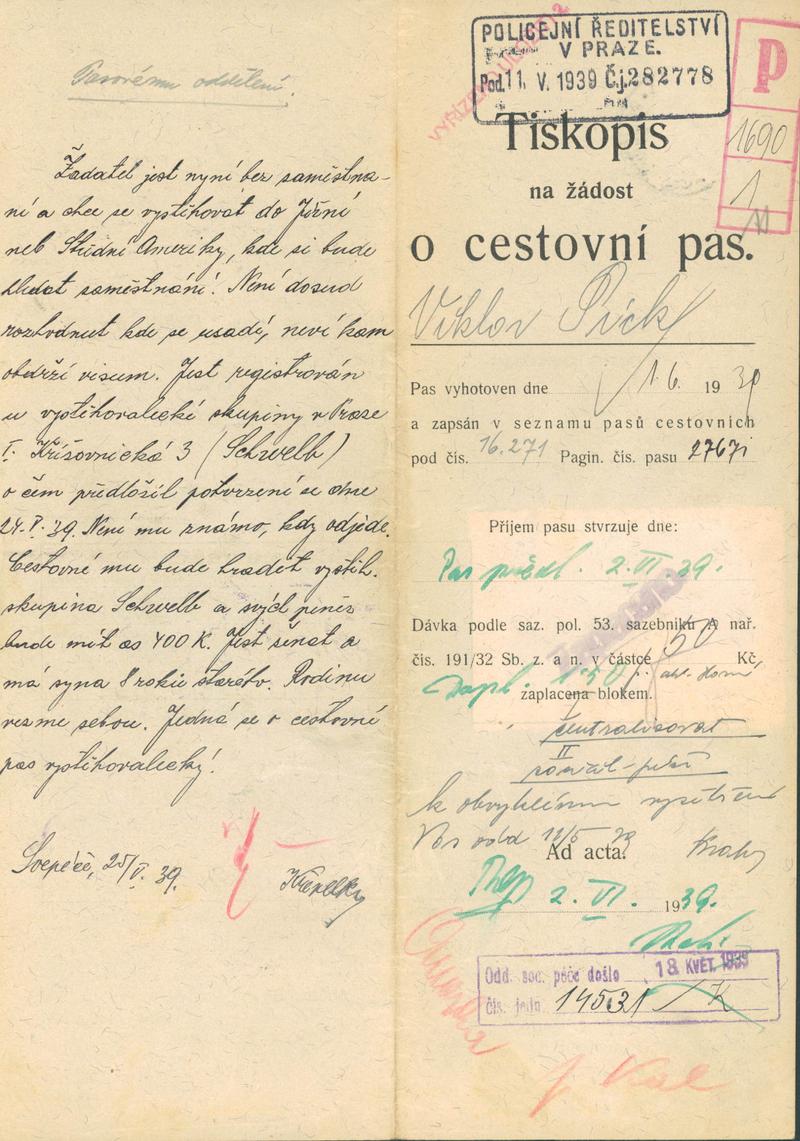 Pasovému oddělení.
Žadatel jest nyní bez zaměstna-
ní a chce se vystěhovat do Jižní
neb Střední Ameriky, kde si bude
hledat zaměstnání. Není dosud
rozhodnut kde se usadí, neví kam
obdrží visum. Jest registrován
u vystěhovalecké skupiny v Praze
I. Křižovnická 3 (Schwelb)
o čem předložil potvrzení ze dne
24.V.39. Není mu známo, kdy odjede.
Cestovné mu bude hradit vystěh.
skupina Schwelb a svých peněz
bude mít as 400 K. Jest ženat a
má syna 8 roků starého. Rodinu
vezme sebou. Jedná se o cestovní
pas vystěhovalecký.
25/V. 39.
POLICEJNÍ ŘEDITELSTVÍ
V PRAZE.
Pod. 11. V. 1939 Čj. 282778
P
1690
1
Tiskopis
na žádost
o cestovní pas.
Viktor Pick
Pas vyhotoven dne 1.6. 1939
a zapsán v seznamu pasů cestovních
pod čís. 16.271 Pagin. čís. pasu 27671
Příjem pasu stvrzuje dne:
Pas předl. 2.VI.39.
Dávka podle saz. pol. 53. sazebníku A nař.
čís. 191/32 Sb. z. a n. v částce 50 Kč,
zaplacena blokem.
centralisovat
II
k obvyklému vyšetření
12/5 39
Ad acta.
2. VI. 1939.
Odd. soc. péče došlo 18. KVĚT. 1939
čís. jedn. 14531/K